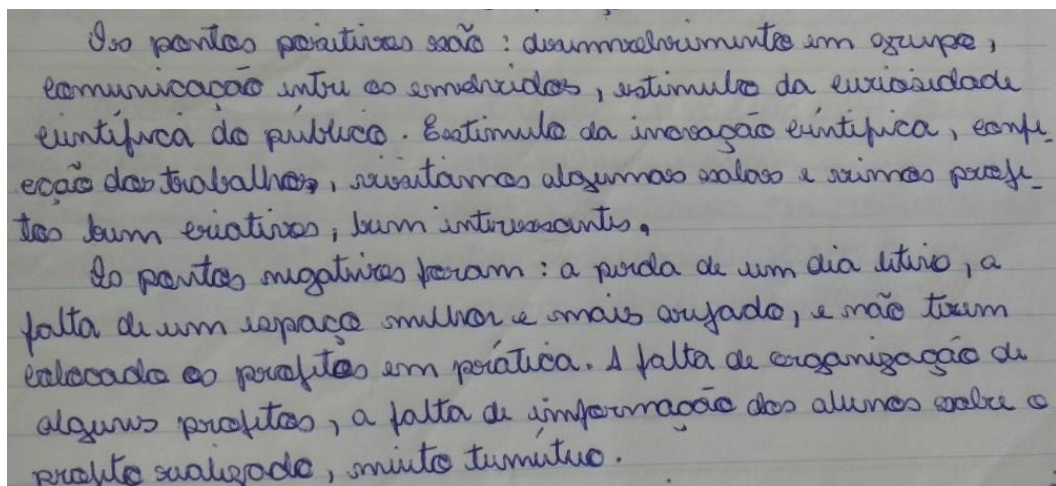 Os pontos positivos são: desenvolvimento em grupo,
comunicação entre os envolvidos, estimulo da curiosidade
científica do público. Estimulo da inovação científica, confe_
cção dos trabalhos, visitamos algumas salas e vimos proje_
tos bem criativos, bem interessantes.
Os pontos negativos foram: a perda de um dia letivo, a
falta de um espaço melhor e mais arejado, e não terem
colocado os projetos em prática. A falta de organização de
alguns projetos, a falta de informação dos alunos sobre o
projeto realizado, muito tumútuo.